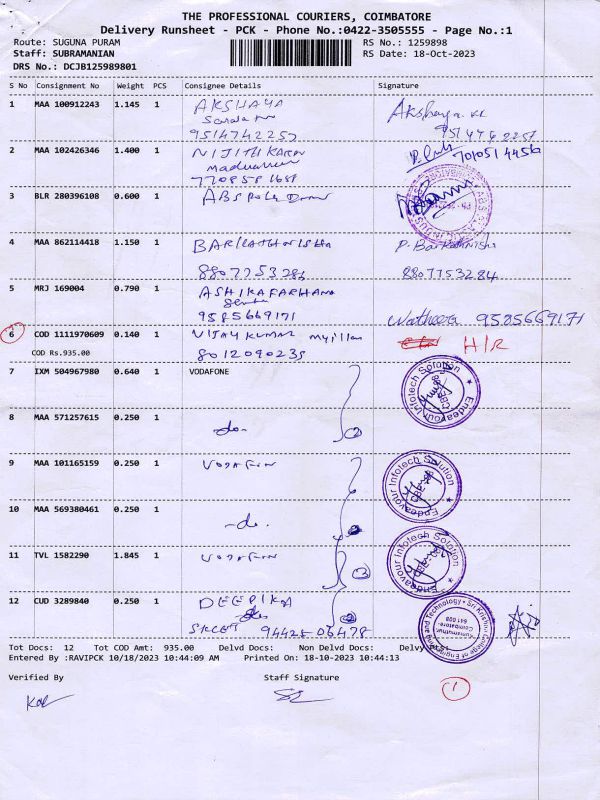 THE PROFESSIONAL COURIERS, COIMBATORE
Delivery Runsheet - PCK - Phone No.:0422-3505555 - Page No.:1
Route: SUGUNA PURAM RS No.: 1259898
Staff: SUBRAMANIAN RS Date: 18-Oct-2023
DRS No.: DCJB125989801
S No Consignment No Weight PCS Consignee Details Signature
1 MAA 100912243 1.145 1 AKSHAYA Akshaya
9514742257
2 MAA 102426346 1.400 1 NIJITH 7010514456
3 BLR 280396108 0.600 1 ABS
4 MAA 862114418 1.150 1 BARKATHNISHA P. Barkathnisha
8807753284
5 MRJ 169004 0.790 1 ASHIKAFARHANA
9585669171 9585669171
6 COD 1111970609 0.140 1 VIJAY KUMAR H/R
COD Rs.935.00 8012090235
7 IXM 504967980 0.640 1 VODAFONE Endeavour Infotech Solution
8 MAA 571257615 0.250 1 -do- 2
9 MAA 101165159 0.250 1 Endeavour Infotech Solution
10 MAA 569380461 0.250 1 -do-
11 TVL 1582290 1.845 1 Endeavour Infotech Solution
12 CUD 3289840 0.250 1 DEEPIKA
SKCET 94425 06478 Sri Krishna College of Engineering and Technology
Coimbatore- 641 008
Tot Docs: 12 Tot COD Amt: 935.00 Delvd Docs: Non Delvd Docs: Delvy
Entered By :RAVIPCK 10/18/2023 10:44:09 AM Printed On: 18-10-2023 10:44:13
Verified By Staff Signature
1